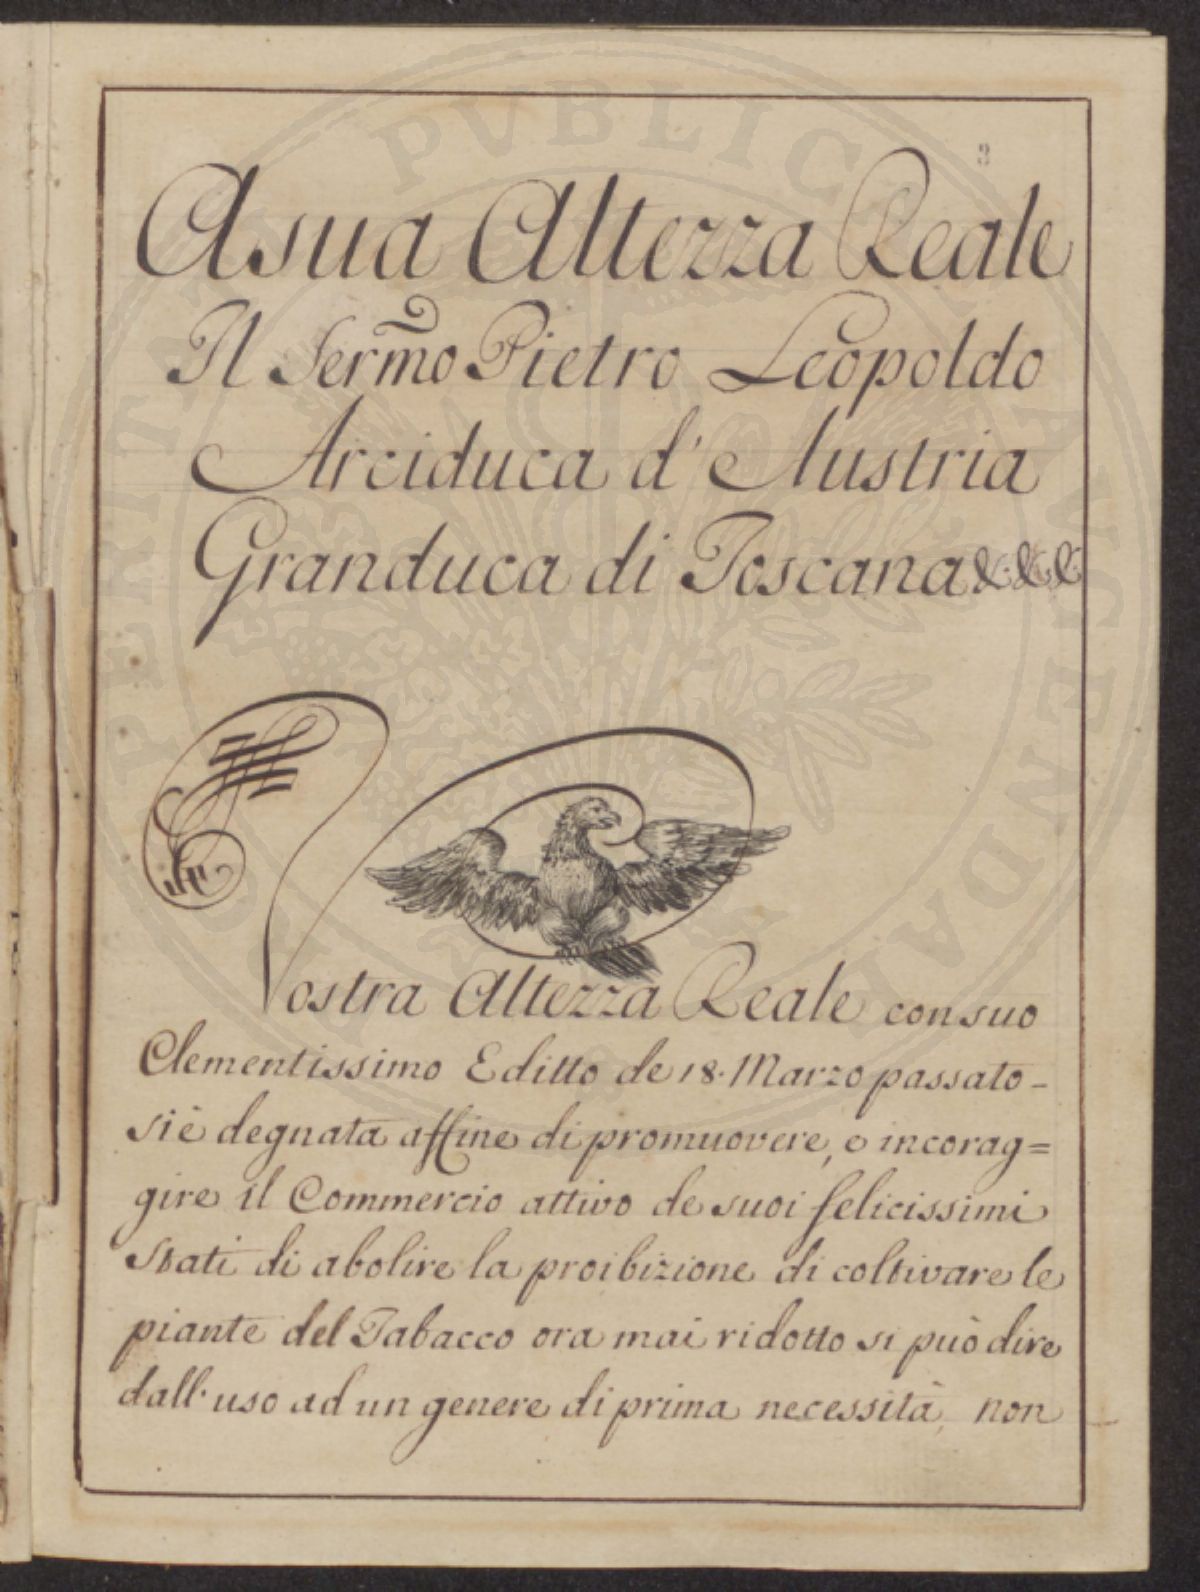 3
A sua Altezza Reale
Il Serm̃o Pietro Leopoldo
Arciduca d'Austria
Granduca di Toscana &c. &c. &c.
Vostra Altezza Reale con suo
Clementissimo Editto de 18. Marzo passato-
si è degnata affine di promuovere, e incorag=
gire il Commercio attivo de suoi felicissimi
Stati di abolire la proibizione di coltivare le
piante del Tabacco ora mai ridotto si può dire
dall'uso ad un genere di prima necessità, non